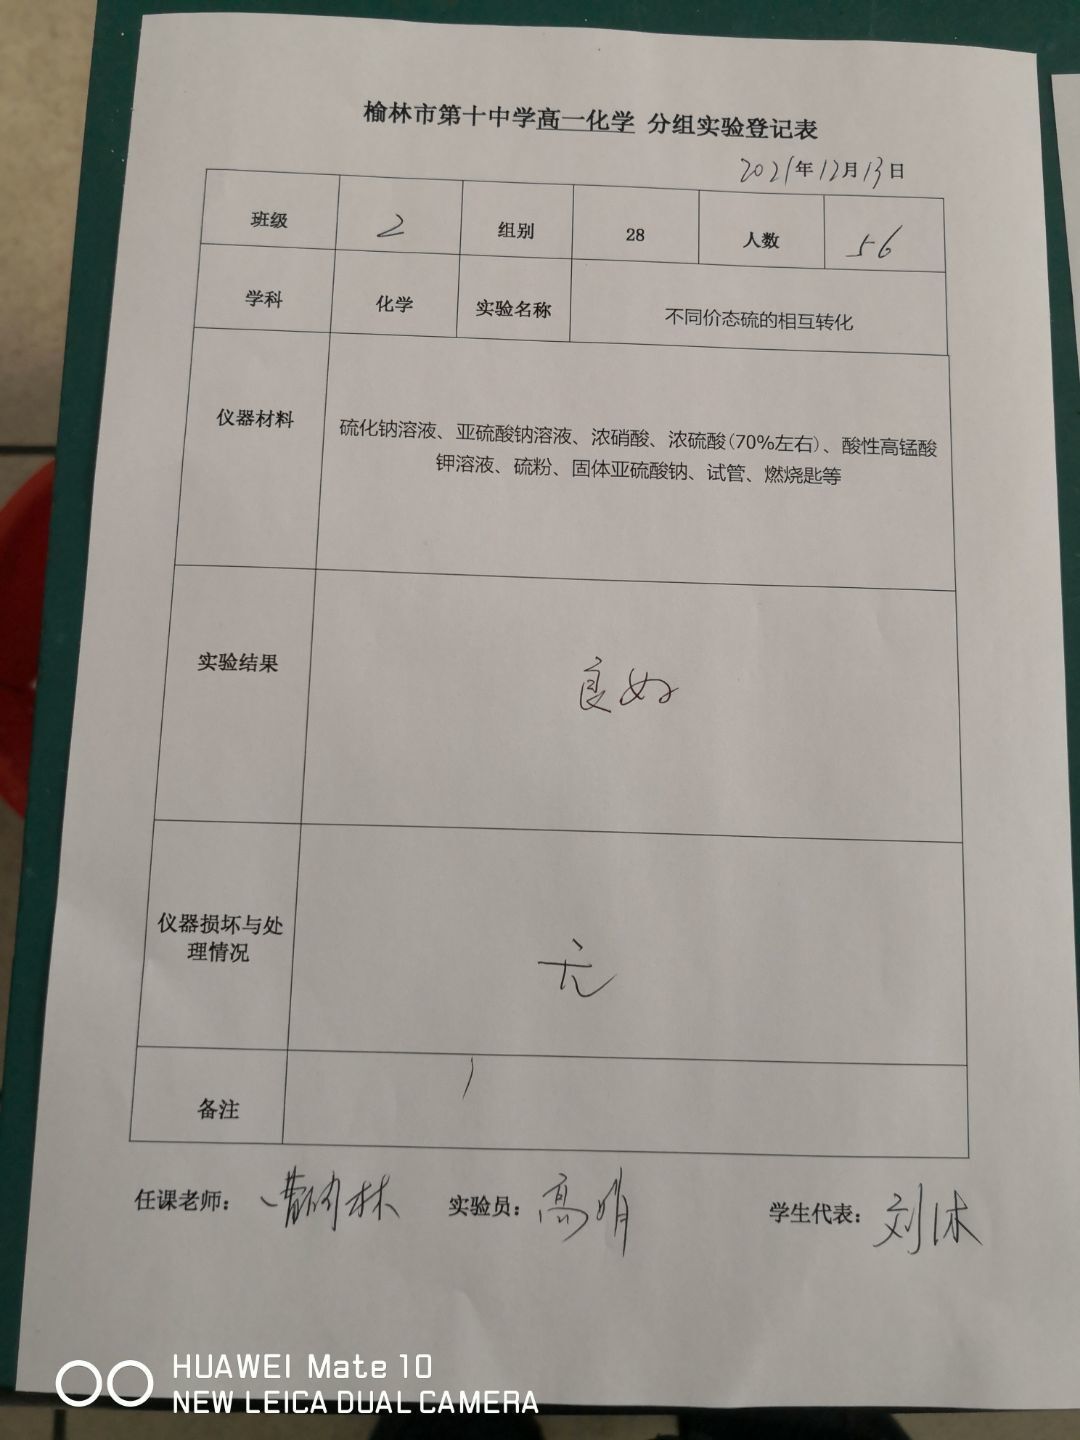 榆林市第十中学高一化学 分组实验登记表
2021年12月13日
班级 2 组别 28 人数 56
学科 化学 实验名称 不同价态硫的相互转化
仪器材料
硫化钠溶液、亚硫酸钠溶液、浓硝酸、浓硫酸(70%左右)、酸性高锰酸
钾溶液、硫粉、固体亚硫酸钠、试管、燃烧匙等
实验结果 良好
仪器损坏与处
理情况
无
备注
任课老师： 实验员：高 学生代表：刘沐
HUAWEI Mate 10
NEW LEICA DUAL CAMERA